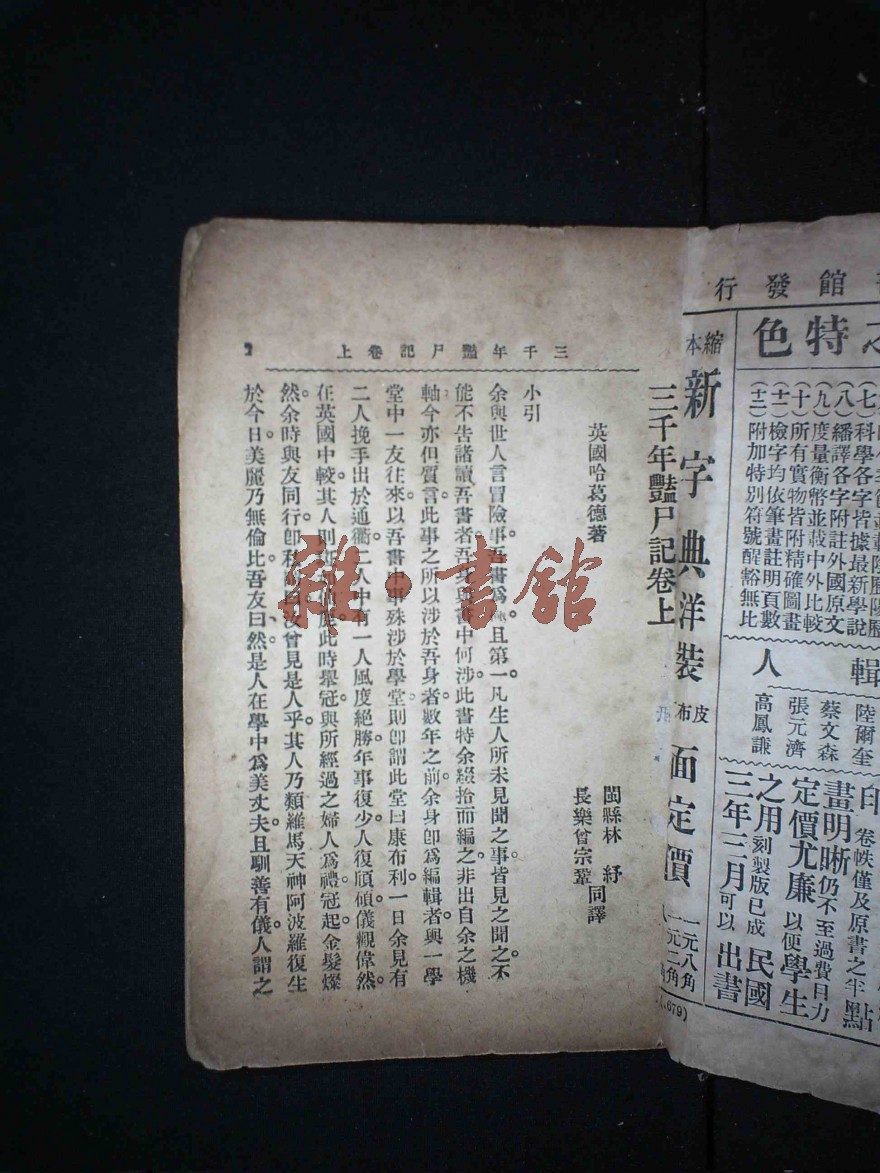 館發行
特色
(七)科學各字皆據最新學說
(八)繙譯各字附註外國原文
(九)度量衡幣並載中外比較
(十)所有實物皆附精確圖畫
(十一)檢字均依筆畫註明頁數
(十二)附加特別符號醒豁無比
輯
人
陸爾奎
蔡文森
張元濟
高鳳謙
印
卷帙僅及原書之半
點
畫明晰仍不至過費目力
定價尤廉以便學生
之用刻製版已成民國
三年三月可以出書
縮本
新字典洋裝
皮布
面定價
一元八角
一元二角
679)
三千年豔尸記卷上
英國哈葛德著
閩縣林紓
長樂曾宗鞏
同譯
小引
余與世人言冒險事。吾書爲且第一凡生人所未見聞之事皆見之聞之不
能不告諸讀吾書者吾身與書中何涉此書特余綴拾而編之非出自余之機
軸今亦但質言此事之所以涉於吾身者數年之前余身卽爲編輯者與一學
堂中一友往來以吾書中事殊涉於學堂則卽謂此堂曰康布利一日余見有
二人挽手出於通衢二人中有一人風度絕勝年事復少人復頎傾儀觀偉然。
在英國中較其人則此時舉冠與所經過之婦人爲禮冠起金髮燦
然。余時與友同行卽汝曾見是人乎。其人乃類羅馬天神阿波羅復生
於今日美麗乃無倫比吾友曰然是人在學中爲美丈夫且馴善有儀人謂之
三千年豔尸記卷上
雜·書館